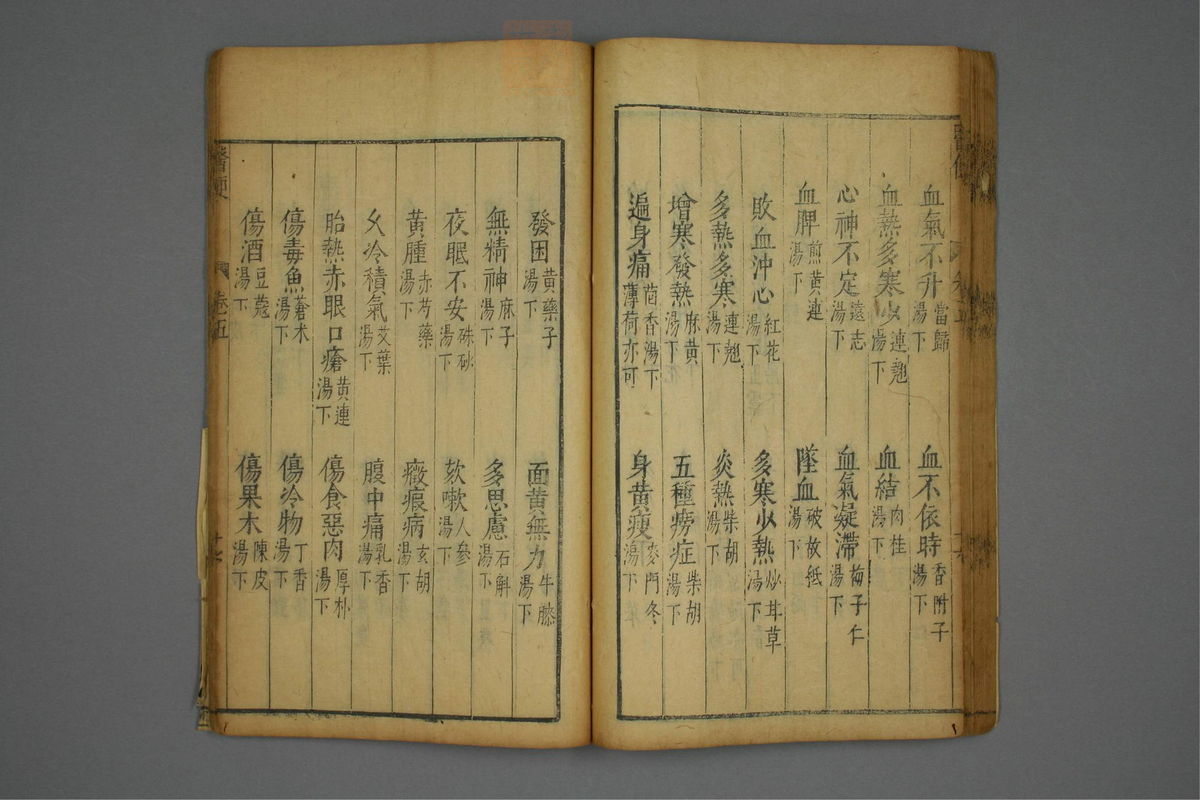 血氣不升 當歸湯下 血不依時 香附子湯下
血熱多寒少 連翹湯下 血結 肉桂湯下
心神不定 遠志湯下 血氣凝滯 梅子仁湯下
血脾 煎黃連湯下 墜血 破故紙湯下
敗血沖心 紅花湯下 多寒少熱 炒甘草湯下
多熱多寒 連翹湯下 炎熱 柴胡湯下
增寒發熱 麻黃湯下 五種癆症 柴胡湯下
遍身痛 茴香湯下薄荷亦可 身黃瘦 麥門冬湯下
發困 黃藥子湯下 面黃無力 牛膝湯下
無精神 麻子湯下 多思慮 石斛湯下
夜眠不安 硃砂湯下 欬嗽 人參湯下
黃腫 赤芍藥湯下 癥瘕病 玄胡湯下
久冷積氣 艾葉湯下 腹中痛 乳香湯下
胎熱赤眼口瘡 黃連湯下 傷食惡肉 厚朴湯下
傷毒魚 蒼术湯下 傷冷物 丁香湯下
傷酒 豆蔻湯下 傷果木 陳皮湯下
醫便 卷五